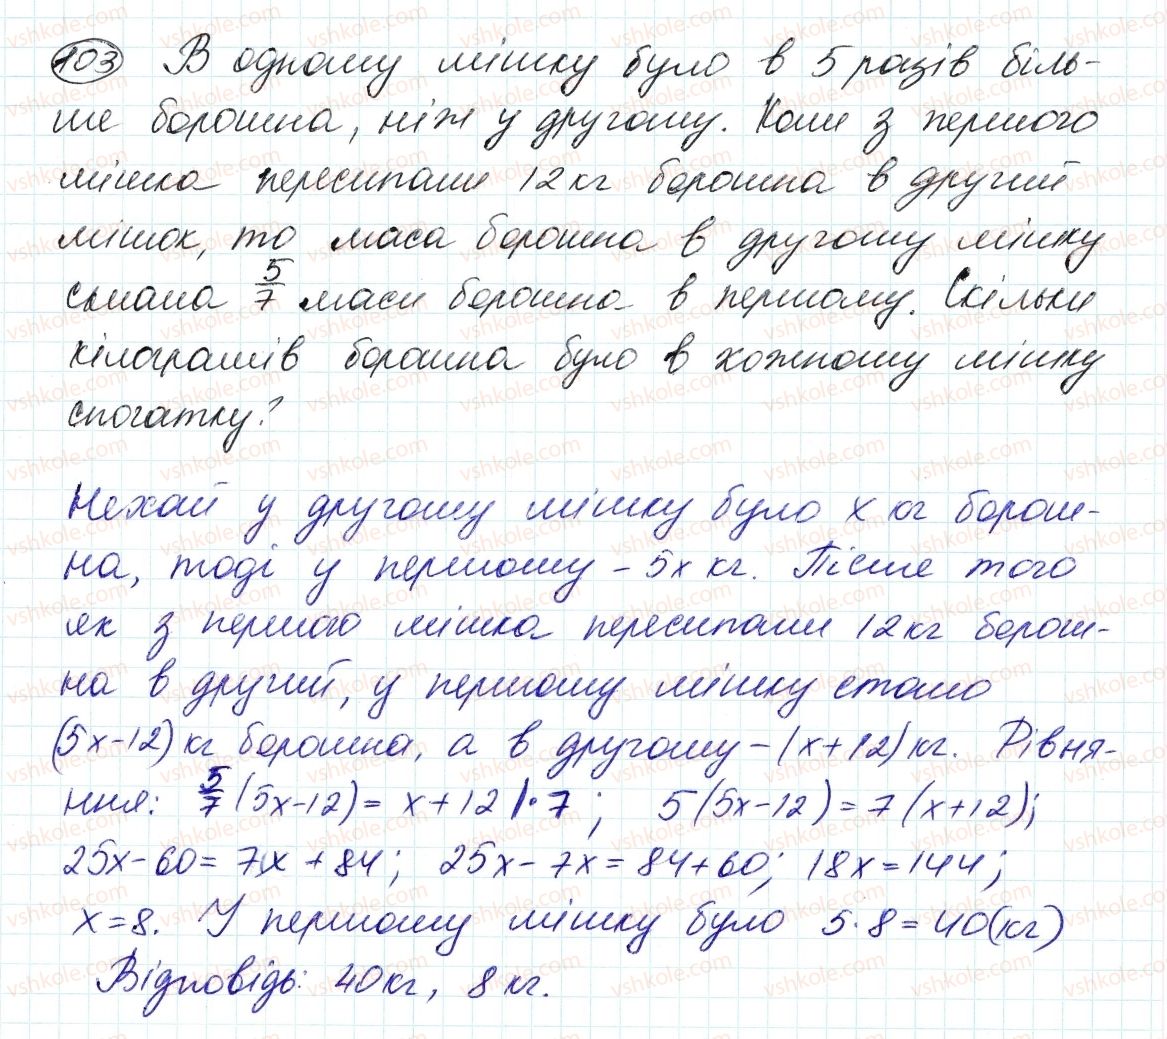 103 В одному мішку було в 5 разів біль-
ше борошна, ніж у другому. Коли з першого
мішка пересипали 12 кг борошна в другий
мішок, то маса борошна в другому мішку
склала 5/7 маси борошна в першому. Скільки
кілограмів борошна було в кожному мішку
спочатку?
Нехай у другому мішку було x кг борош-
на, тоді у першому – 5x кг. Після того
як з першого мішка пересипали 12 кг борош-
на в другий, у першому мішку стало
(5x-12) кг борошна, а в другому – (x+12) кг. Рівня-
ння: 5/7 (5x-12) = x+12 |·7; 5(5x-12) = 7(x+12);
25x-60 = 7x + 84; 25x-7x = 84+60; 18x = 144;
x=8. У першому мішку було 5·8=40(кг)
Відповідь: 40 кг, 8 кг.